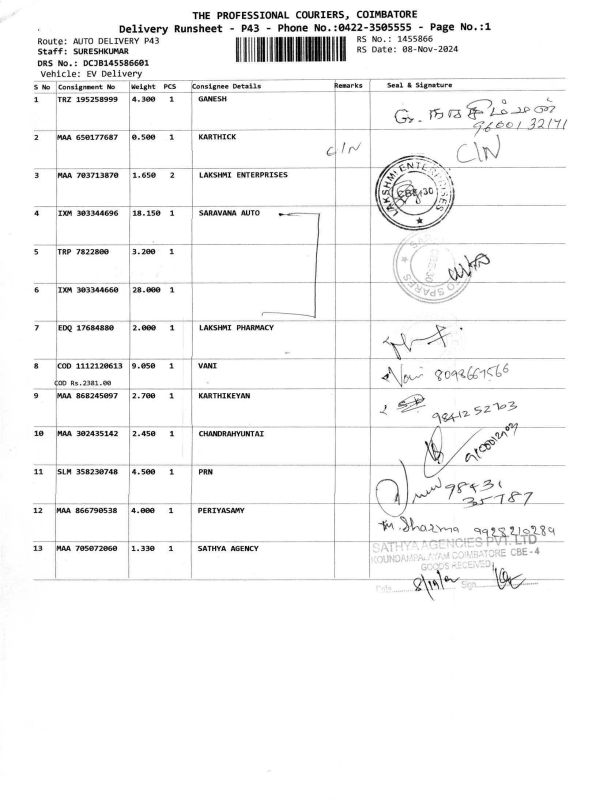 THE PROFESSIONAL COURIERS, COIMBATORE
Delivery Runsheet - P43 - Phone No.:0422-3505555 - Page No.:1
Route: AUTO DELIVERY P43 RS No.: 1455866
Staff: SURESHKUMAR RS Date: 08-Nov-2024
DRS No.: DCJB145586601
Vehicle: EV Delivery
S No Consignment No Weight PCS Consignee Details Remarks Seal & Signature
1 TRZ 195258999 4.300 1 GANESH
9600132171
2 MAA 650177687 0.500 1 KARTHICK C/N C/N
3 MAA 703713870 1.650 2 LAKSHMI ENTERPRISES LAKSHMI ENTERPRISES CBE-30
4 IXM 303344696 18.150 1 SARAVANA AUTO
5 TRP 7822800 3.200 1
6 IXM 303344660 28.000 1
7 EDQ 17684880 2.000 1 LAKSHMI PHARMACY
8 COD 1112120613 9.050 1 VANI Vani 8098667566
COD Rs.2381.00
9 MAA 868245097 2.700 1 KARTHIKEYAN 9841252703
10 MAA 302435142 2.450 1 CHANDRAHYUNTAI
11 SLM 358230748 4.500 1 PRN 98431
35787
12 MAA 866790538 4.000 1 PERIYASAMY M. Sharma 9928210289
13 MAA 705072060 1.330 1 SATHYA AGENCY SATHYA AGENCIES PVT. LTD
KOUNDAMPALAYAM COIMBATORE CBE-4
GOODS RECEIVED
Date Sign